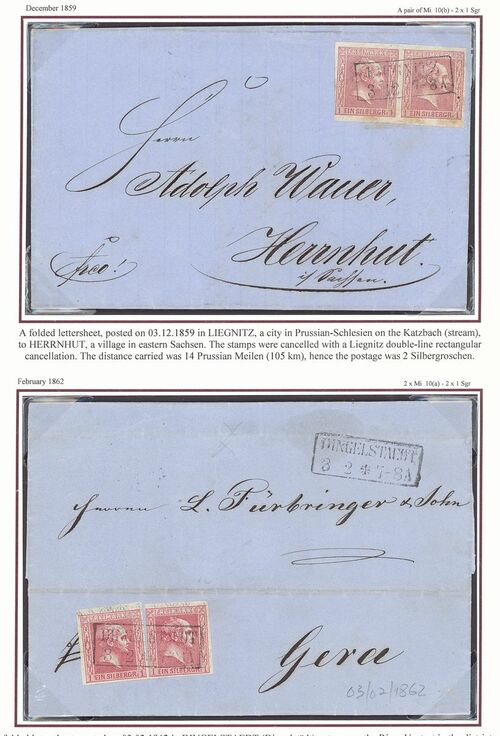 December 1859
A pair of Mi. 10(b) - 2 x 1 Sgr
FREIMARKE FREIMARKE
1 EIN SILBERGR. 1 1 EIN SILBERGR. 1
Herrn
Adolph Wauer,
Herrnhut.
i/ Sachsen.
frco!
A folded lettersheet, posted on 03.12.1859 in LIEGNITZ, a city in Prussian-Schlesien on the Katzbach (stream),
to HERRNHUT, a village in eastern Sachsen. The stamps were cancelled with a Liegnitz double-line rectangular
cancellation. The distance carried was 14 Prussian Meilen (105 km), hence the postage was 2 Silbergroschen.
February 1862
2 x Mi. 10(a) - 2 x 1 Sgr
DINGELSTAEDT
3 2 * 7-8A
Herren L. Fürbringer & Sohn
FREIMARKE FREIMARKE
1 EIN SILBERGR. 1 1 EIN SILBERGR. 1
Gera
03/02/1862